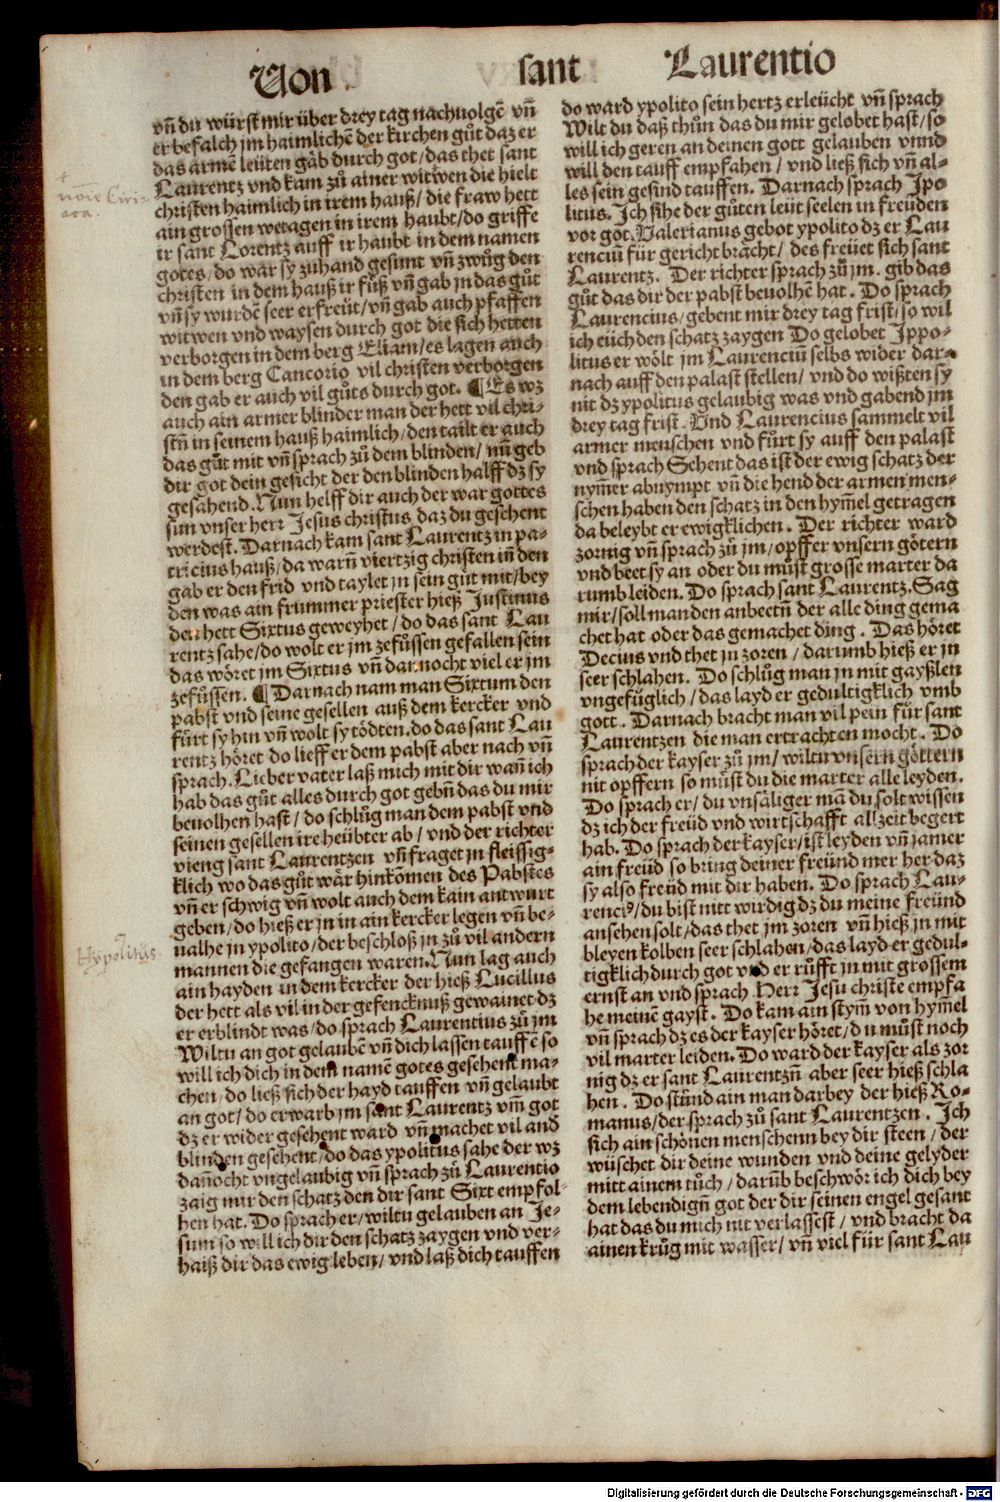 Von sant Laurentio
vn̄ du würst mir über drey tag nachuolgē vn̄
er befalch jm haimlichē der kirchen gůt daz er
das armē leüten gäb durch got / das thet sant
Laurentz vnd kam zů ainer witwen die hielt
christen haimlich in irem hauß / die fraw hett
ain grossen wetagen in irem haubt / do griffe
ir sant Lorentz auff ir haubt in dem namen
gotes / do war sy zuhand gesunt vn̄ zwůg den
christen in dem hauß ir fůß vn̄ gab jn das gůt
vn̄ sy wurdē seer erfreüt / vn̄ gab auch pfaffen
witwen vnd waysen durch got die sich hetten
verborgen in dem berg Eliam / es lagen auch
in dem berg Cancorio vil christen verborgen
den gab er auch vil gůts durch got. ¶ Es wz
auch ain armer blinder man der hett vil chri-
stn̄ in seinem hauß haimlich / den tailt er auch
das gůt mit vn̄ sprach zů dem blinden / nun geb
dir got dein gesicht der den blinden halff dz sy
gesahend. Nun helff dir auch der war gottes
sun vnser herr Jesus christus daz du gesehent
werdest. Darnach kam sant Laurentz in pa-
tricius hauß / da warn̄ viertzig christen in̄ den
gab er den frid vnd taylet jn sein gůt mit / bey
den was ain frummer priester hieß Justinus
den hett Sixtus geweyhet / do das sant Lau
rentz sahe / do wolt er jm zefůssen gefallen sein
das wöret jm Sixtus vn̄ dannocht viel er jm
zefůssen. ¶ Darnach nam man Sixtum den
pabst vnd seine gesellen auß dem kercker vnd
fůrt sy hin vn̄ wolt sy tödten. do das sant Lau
rentz höret do lieff er dem pabst aber nach vn̄
sprach. Lieber vater laß mich mit dir wan̄ ich
hab das gůt alles durch got gebn̄ das du mir
beuolhen hast / do schlůg man dem pabst vnd
seinen gesellen ire heübter ab / vnd der richter
vieng sant Laurentzen vn̄ fraget jn fleissig-
klich wo das gůt wär hinkōmen des Pabstes
vn̄ er schwig vn̄ wolt auch dem kain antwurt
geben / do hieß er jn in ain kercker legen vn̄ be-
ualhe jn ypolito / der beschloß jn zů vil andern
mannen die gefangen waren. Nun lag auch
ain hayden in dem kercker der hieß Lucillus
der hett als vil in der gefencknuß gewainet dz
er erblindt was / do sprach Laurentius zů jm
Wiltu an got gelaubē vn̄ dich lassen tauffē so
will ich dich in dem namē gotes gesehent ma-
chen / do ließ sich der hayd tauffen vn̄ gelaubt
an got / do erwarb jm sant Laurentz vm̄ got
dz er wider gesehent ward vn̄ machet vil and
blinden gesehent / do das ypolitus sahe der wz
dan̄ocht vngelaubig vn̄ sprach zů Laurentio
zaig mir den schatz den dir sant Sixt empfol-
hen hat. Do sprach er / wiltu gelauben an Je-
sum so will ich dir den schatz zaygen vnd ver-
haiß dir das ewig leben / vnd laß dich tauffen
do ward ypolito sein hertz erleücht vn̄ sprach
Wilt du daß thůn das du mir gelobet hast / so
will ich geren an deinen gott gelauben vnnd
will den tauff empfahen / vnd ließ sich vn̄ al-
les sein gesind tauffen. Darnach sprach Jpo
litus. Ich sihe der gůten leüt seelen in freüden
vor got. Valerianus gebot ypolito dz er Lau
renciū für gericht bracht / des freüet sich sant
Laurentz. Der richter sprach zů jm. gib das
gůt das dir der pabst beuolhē hat. Do sprach
Laurencius / gebent mir drey tag frist / so wil
ich eüch den schatz zaygen Do gelobet Jppo-
litus er wölt jm Laurenciū selbs wider dar-
nach auff den palast stellen / vnd do wißten sy
nit dz ypolitus gelaubig was vnd gabend jm
drey tag frist. Vnd Laurencius sammelt vil
armer menschen vnd fůrt sy auff den palast
vnd sprach Sehent das ist der ewig schatz der
nym̄er abnympt vn̄ die hend der armen men-
schen haben den schatz in den hym̄el getragen
da beleybt er ewigklichen. Der richter ward
zornig vn̄ sprach zů jm / opffer vnsern götern
vnd beet sy an oder du můst grosse marter da
rumb leiden. Do sprach sant Laurentz. Sag
mir / soll man den anbeetn̄ der alle ding gema
chet hat oder das gemachet ding. Das höret
Decius vnd thet jn zoren / darumb hieß er jn
seer schlahen. Do schlůg man jn mit gayßlen
vngefůglich / das layd er gedultigklich vmb
gott. Darnach bracht man vil pein für sant
Laurentzen die man ertrachten mocht. Do
sprach der kayser zů jm / wiltu vnsern göttern
nit opffern so můst du die marter alle leyden.
Do sprach er / du vnsäliger mā du solt wissen
dz ich der freüd vnd wirtschafft allzeit begert
hab. Do sprach der kayser / ist leyden vn̄ jamer
ain freüd so bring deiner freünd mer her daz
sy also freüd mit dir haben. Do sprach Lau-
renciꝰ / du bist nitt wirdig dz du meine freünd
ansehen solt / das thet jm zoren vn̄ hieß jn mit
bleyen kolben seer schlahen / das layd er gedul-
tigklich durch got vnd er růfft jn mit grossem
ernst an vnd sprach Herr Jesu christe empfa
he meinē gayst. Do kam ain stym̄ von hym̄el
vn̄ sprach dz es der kayser höret / du můst noch
vil marter leiden. Do ward der kayser als zor
nig dz er sant Laurentzn̄ aber seer hieß schla
hen. Do stůnd ain man darbey der hieß Ro-
manus / der sprach zů sant Laurentzen. Ich
sich ain schönen menschenn bey dir steen / der
wüschet dir deine wunden vnd deine gelyder
mitt ainem tůch / darūb beschwör ich dich bey
dem lebendign̄ got der dir seinen engel gesant
hat das du mich nit verlassest / vnd bracht da
ainen krůg mit wasser / vn̄ viel für sant Lau
Hÿpolitüs
Digitalisierung gefördert durch die Deutsche Forschungsgemeinschaft - DFG